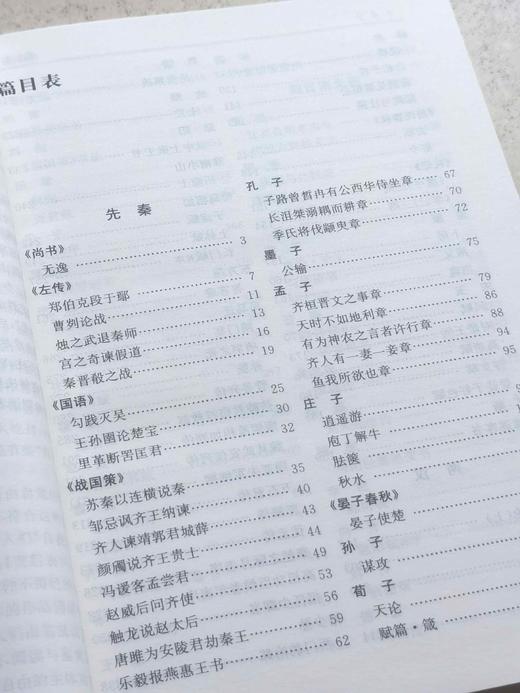 篇目表
先秦
《尚书》
无逸 3
《左传》
郑伯克段于鄢 7
曹刿论战 11
烛之武退秦师 13
宫之奇谏假道 16
秦晋殽之战 19
《国语》
勾践灭吴 25
王孙圉论楚宝 30
里革断罟匡君 32
《战国策》
苏秦以连横说秦 35
邹忌讽齐王纳谏 40
齐人谏靖郭君城薛 44
颜斶说齐王贵士 49
冯谖客孟尝君 49
赵威后问齐使 53
触龙说赵太后 56
唐雎为安陵君劫秦王 59
乐毅报燕惠王书 62
孔子
子路曾皙冉有公西华侍坐章 67
长沮桀溺耦而耕章 70
季氏将伐颛臾章 72
墨子
公输 75
孟子
齐桓晋文之事章 79
天时不如地利章 86
有为神农之言者许行章 88
齐人有一妻一妾章 94
鱼我所欲也章 95
庄子
逍遥游
庖丁解牛
胠箧
秋水
《晏子春秋》
晏子使楚
孙子
谋攻
荀子
天论
赋篇·箴